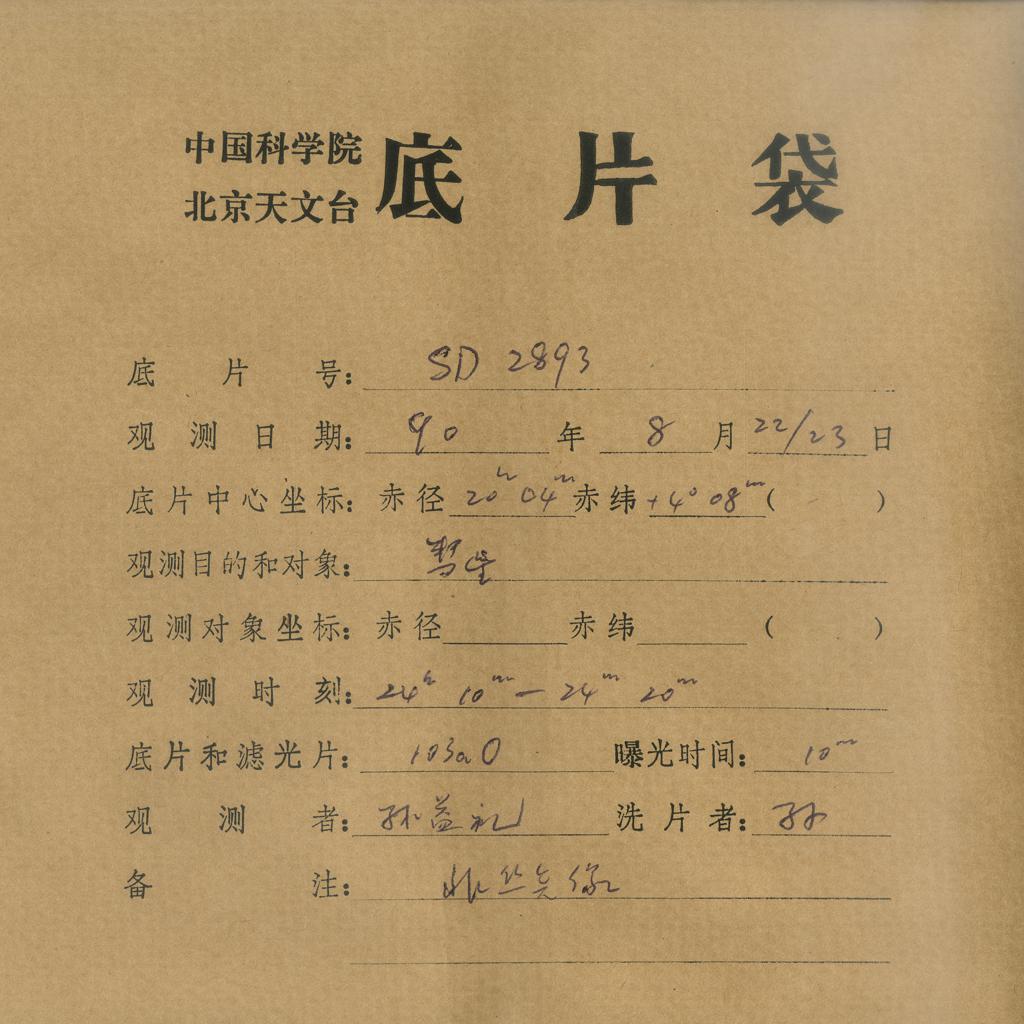 中国科学院
北京天文台
底片袋
底片号: SD 2893
观测日期: 90 年 8 月 22/23 日
底片中心坐标: 赤径 20h 04m 赤纬 +4° 08m ( )
观测目的和对象: 彗星
观测对象坐标: 赤径 赤纬 ( )
观测时刻: 24h 10m — 24m 20m
底片和滤光片: 103aO 曝光时间: 10m
观测者: 孙益礼 洗片者: 孙
备注: